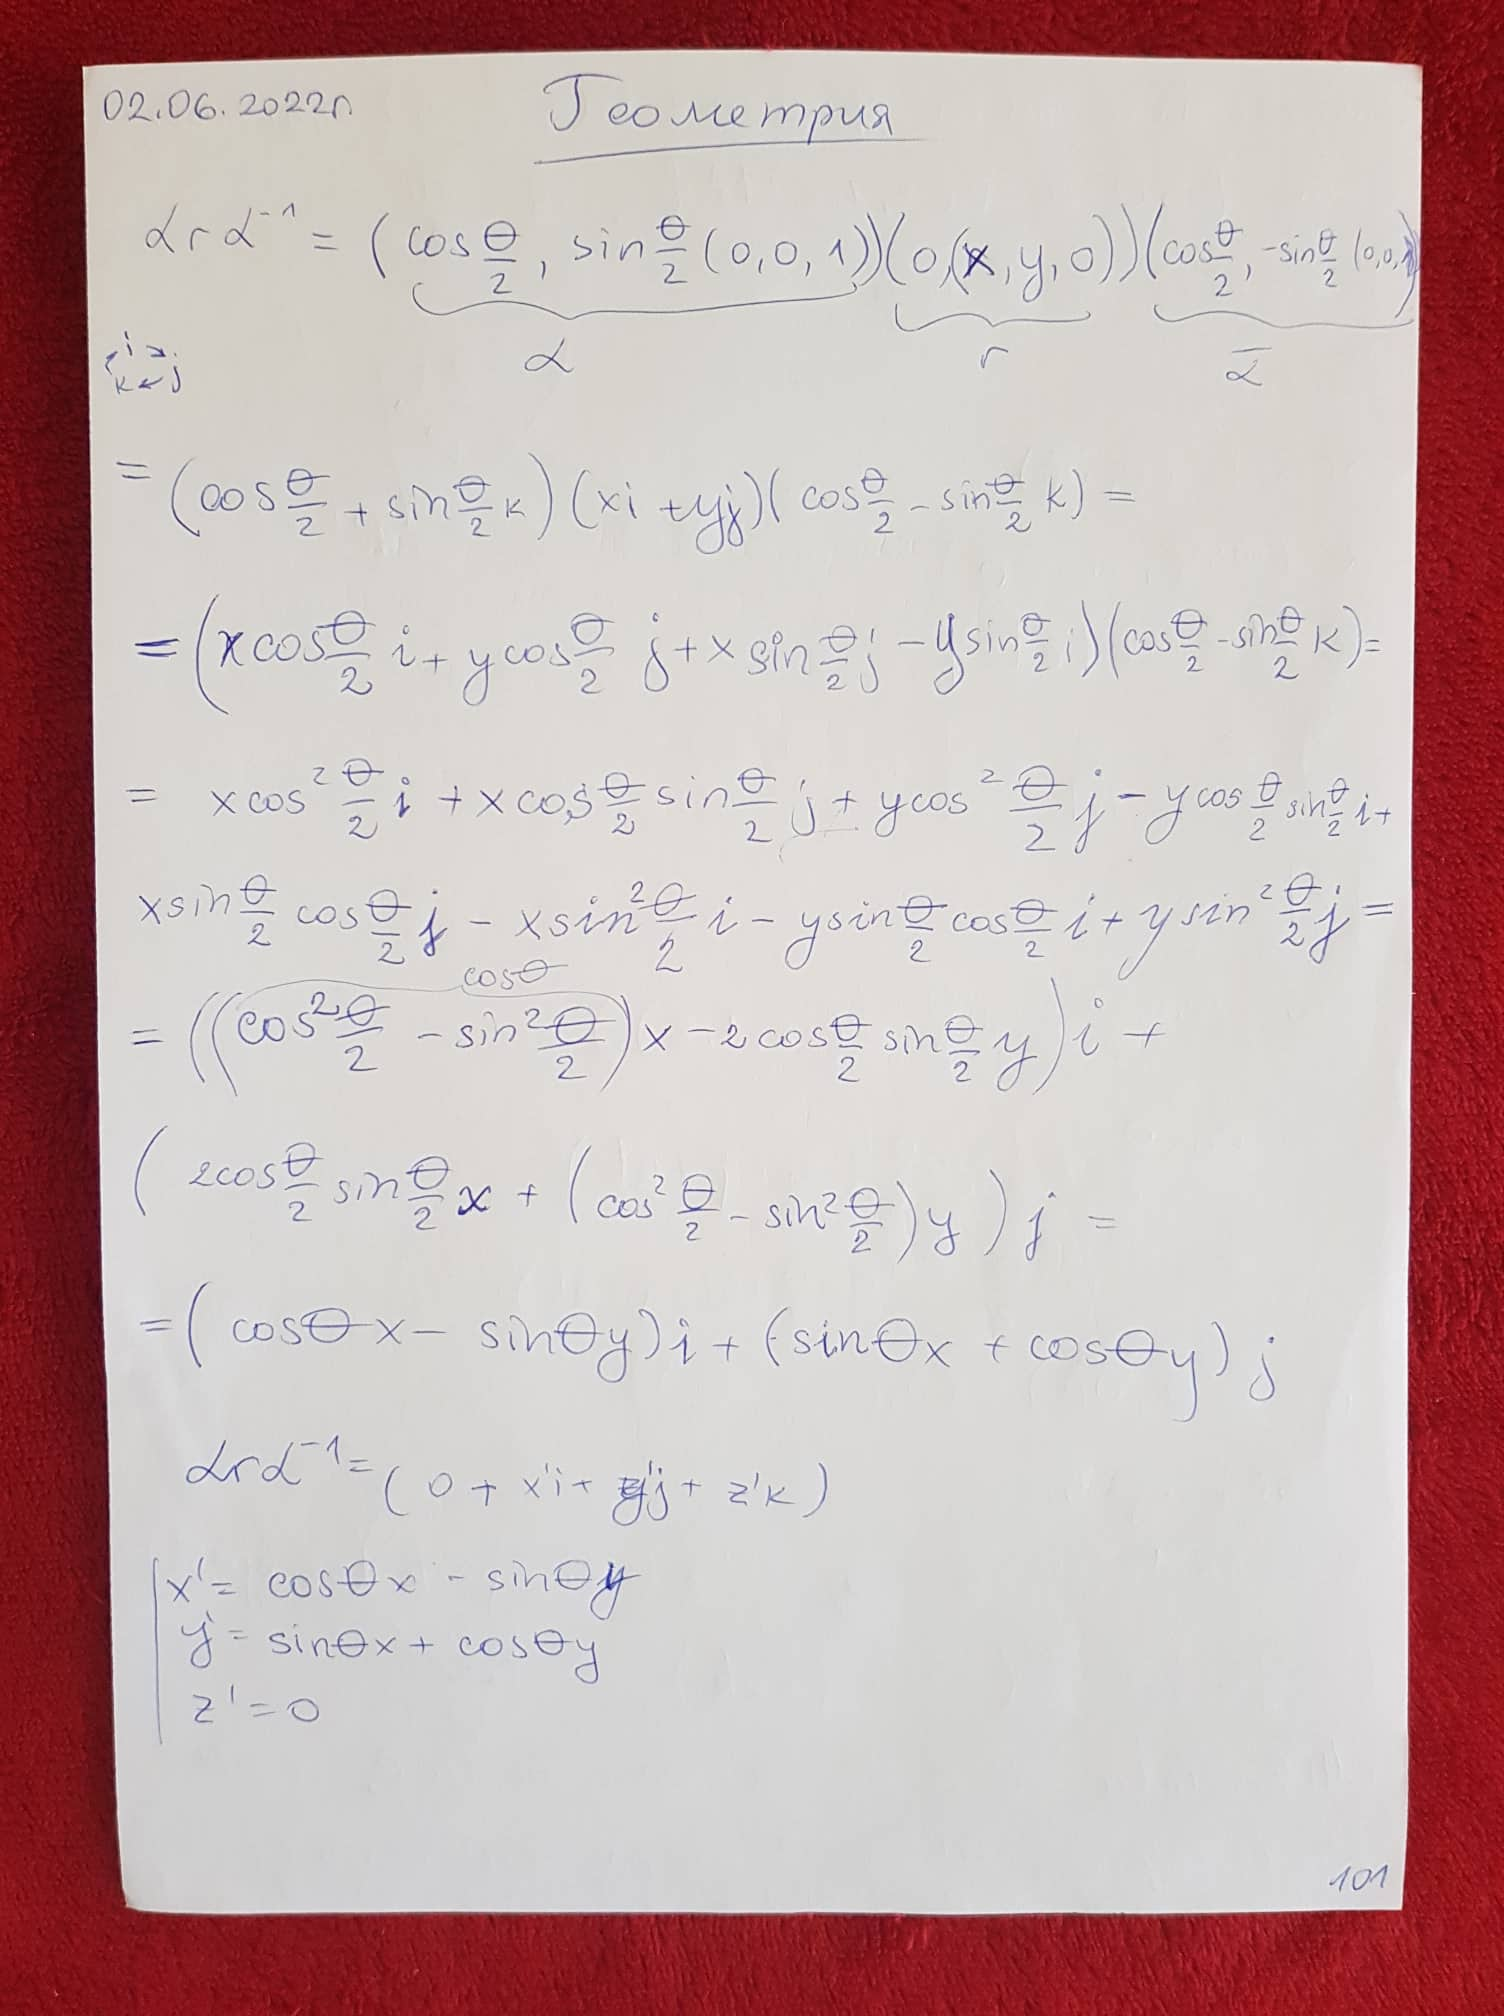 02.06.2022г. Геометрия
αrα⁻¹ = (cos θ/2, sin θ/2 (0,0,1))(0,(x,y,0))(cos θ/2, -sin θ/2 (0,0,1)
α r ᾱ
i j k
= (cos θ/2 + sin θ/2 k)(xi + yj)(cos θ/2 - sin θ/2 k) =
= (x cos θ/2 i + y cos θ/2 j + x sin θ/2 j - y sin θ/2 i)(cos θ/2 - sin θ/2 k) =
= x cos² θ/2 i + x cos θ/2 sin θ/2 j + y cos² θ/2 j - y cos θ/2 sin θ/2 i +
x sin θ/2 cos θ/2 j - x sin² θ/2 i - y sin θ/2 cos θ/2 i + y sin² θ/2 j =
cos θ
= ((cos² θ/2 - sin² θ/2) x - 2 cos θ/2 sin θ/2 y) i +
(2 cos θ/2 sin θ/2 x + (cos² θ/2 - sin² θ/2) y) j =
= (cos θ x - sin θ y) i + (sin θ x + cos θ y) j
αrα⁻¹ = (0 + x'i + y'j + z'k)
x' = cos θ x - sin θ y
y' = sin θ x + cos θ y
z' = 0
101